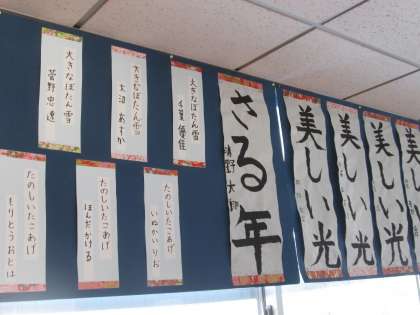 大きなぼたん雪
菅野忠逸
大きなぼたん雪
大沼あすか
大きなぼたん雪
千葉優佳
たのしいたこあげ
もりとうおとは
たのしいたこあげ
ほんだかける
たのしいたこあげ
いぬかいりお
さる年
美しい光
美しい光
美しい光
美しい光